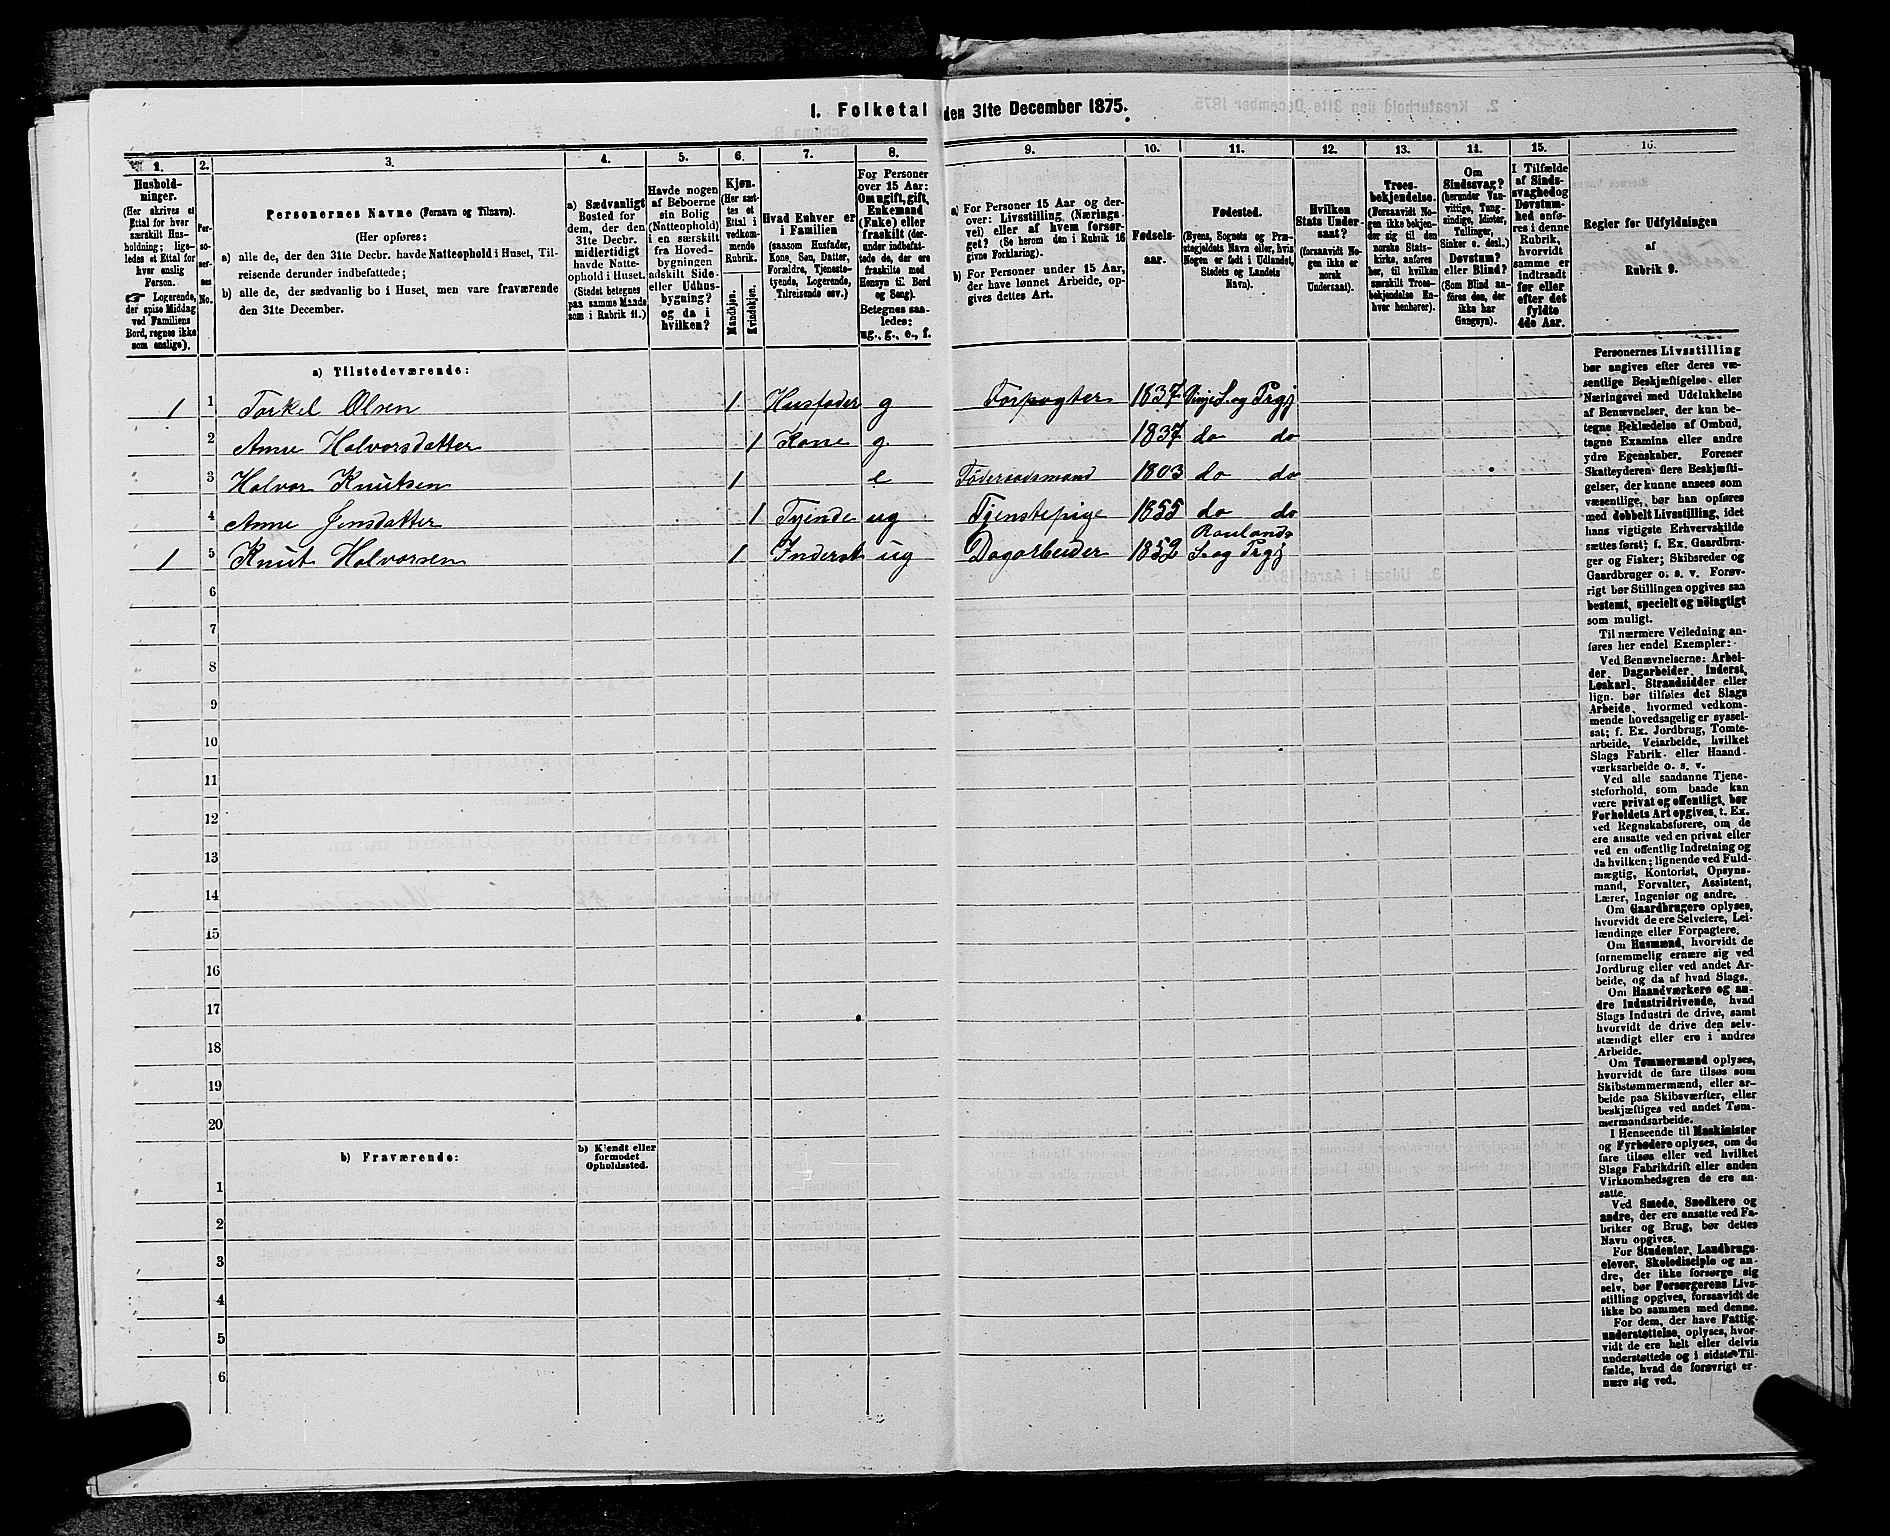 1. Folketal den 31te December 1875.
1. 2. 3. 4. 5. 6. 7. 8. 9. 10. 11. 12. 13. 14. 15. 16.
Hushold-
ninger.
(Her skrives et
Ettal for hver
særskilt Hus-
holdning; lige-
ledes et Ettal for
hver enslig
Person.
☞ Logerende,
der spise Middag
ved Familiens
Bord, regnes ikke
som enslige).
Per-
so-
ner-
nes
No.
Personernes Navne (Fornavn og Tilnavn).
(Her opføres:
a) alle de, der den 31te Decbr. havde Natteophold i Huset, Til-
reisende derunder indbefattede;
b) alle de, der sædvanlig bo i Huset, men vare fraværende
den 31te December.
a) Sædvanligt
Bosted for
dem, der den
31te Decbr.
midlertidigt
havde Natte-
ophold i Huset.
(Stedet betegnes
paa samme Maade
som i Rubrik 11.)
Havde nogen
af Beboerne
sin Bolig
(Natteophold)
i en særskilt
fra Hoved-
bygningen
adskilt Side-
eller Udhus-
bygning?
og da i
hvilken?
Kjøn.
(Her sæt-
tes et
Ettal i
vedkom-
mende
Rubrik.
Mandkjøn.
Kvindekjøn.
Hvad Enhver er
i Familien
(saasom Husfader,
Kone, Søn, Datter,
Forældre, Tjeneste-
tyende, Logerende,
Tilreisende osv.)
For Personer
over 15 Aar:
Om ugift, gift,
Enkemand
(Enke) eller
fraskilt (der-
under indbefat-
tede de, der ere
fraskilte med
Hensyn til Bord
og Seng).
Betegnes saa-
ledes:
ug., g., e., f.
a) For Personer 15 Aar og der-
over: Livsstilling, (Nærings-
vei) eller af hvem forsør-
get? (Se herom den i Rubrik 16
givne Forklaring).
b) For Personer under 15 Aar,
der have lønnet Arbeide, op-
gives dettes Art.
Fødsels-
aar.
Fødested.
(Byens, Sognets og Præ-
stegjeldets Navn eller, hvis
Nogen er født i Udlandet,
Stedets og Landets
Navn).
Hvilken
Stats Under-
saat?
(forsaavidt No-
gen ikke er
norsk
Undersaat).
Troes-
bekjendelse.
(Forsaavidt No-
gen ikke bekjen-
der sig til den
norske Stats-
kirke, anføres
her, til hvilken
særskilt Troes-
bekjendelse En-
hver henhører).
Om
Sindssvag?
(herunder Van-
vittige, Tung-
sindige, Idioter,
Tullinger,
Sinker o. desl.)
Døvstum?
eller Blind?
(Som Blind an-
føres den, der
ikke har
Gangsyn).
I Tilfælde
af Sinds-
svaghed og
Døvstum-
hed anfø-
res i denne
Rubrik,
hvorvidt
samme er
indtraadt
før eller
efter det
fyldte
4de Aar.
Regler for Udfyldningen
af
Rubrik 9.
a) Tilstedeværende:
1 1 Torkel Olsen 1 Husfader g Forpagter 1837 Vinje S. og Prgj
2 Anne Halvorsdatter 1 Kone g 1837 do do
3 Halvor Knutsen 1 e Føderaadsmand 1803 do do
4 Anne Jensdatter 1 Tyende ug Tjenstepige 1855 do do
1 5 Knut Halvorsen 1 Inderst ug Dagarbeider 1852 Raulands S. og Prgj
6
7
8
9
10
11
12
13
14
15
16
17
18
19
20
b) Fraværende:
b) Kjendt eller
formodet
Opholdssted.
1
2
3
4
5
6
Personernes Livsstilling
bør angives efter deres væ-
sentlige Beskjæftigelse eller
Næringsvei med Udelukkelse
af Benævnelser, der kun be-
tegne Beklædelse af Ombud,
tagne Examina eller andre
ydre Egenskaber. Forener
Skatteyderen flere Beskjæfti-
gelser, der kunne ansees som
væsentlige, bør han opføres
med dobbelt Livsstilling, idet
hans vigtigste Erhvervskilde
sættes først; f. Ex. Gaardbru-
ger og Fisker; Skibsreder og
Gaardbruger o. s. v. Forøv-
rigt bør Stillingen opgives saa
bestemt, specielt og nøiagtigt
som muligt.
Til nærmere Veiledning an-
føres her endel Exempler:
Ved Benævnelserne: Arbei-
der, Dagarbeider, Inderst,
Løskarl, Strandsidder eller
lign. bør tilføies det Slags
Arbeide, hvormed vedkom-
mende hovedsagelig er syssel-
sat; f. Ex. Jordbrug, Tomte-
arbeide, Veiarbeide, hvilket
Slags Fabrik- eller Haand-
værksarbeide o. s. v.
Ved alle saadanne Tjene-
steforhold, som baade kan
være privat og offentligt, bør
Forholdets Art opgives, t. Ex.
ved Regnskabsførere, om de
ere ansatte ved en privat eller
ved en offentlig Indretning og
da hvilken; lignende ved Fuld-
mægtig, Kontorist, Opsyns-
mand, Forvalter, Assistent,
Lærer, Ingeniør og andre.
Om Gaardbrugere oplyses,
hvorvidt de ere Selveiere, Lei-
lændinge eller Forpagtere.
Om Husmænd, hvorvidt de
fornemmelig ernære sig ved
Jordbrug eller ved andet Ar-
beide, og da af hvad Slags.
Om Haandværkere og an-
dre Industridrivende, hvad
Slags Industri de drive, samt
hvorvidt de drive den selv-
stændigt eller ere i andres
Arbeide.
Om Tømmermænd oplyses,
hvorvidt de fare tilsøs som
Skibstømmermænd, eller ar-
beide paa Skibsværfter, eller
beskjæftiges ved andet Tøm-
mermandsarbeide.
I Henseende til Maskinister
og Fyrbødere oplyses, om de
fare tilsøs eller ved hvilket
Slags Fabrikdrift eller anden
Virksomhedsgren de ere an-
satte.
Ved Smede, Snedkere og
andre, der ere ansatte ved Fa-
briker og Brug, bør dettes
Navn opgives.
For Studenter, Landbrugs-
elever, Skoledisciple og an-
dre, der ikke forsørge sig
selv, bør Forsørgerens Livs-
stilling opgives, forsaavidt de
ikke bo sammen med denne.
For dem, der have Fattig-
understøttelse, oplyses, hvor-
vidt de ere helt eller delvis
understøttede og i sidste Til-
fælde, hvad de forøvrigt er-
nære sig ved.